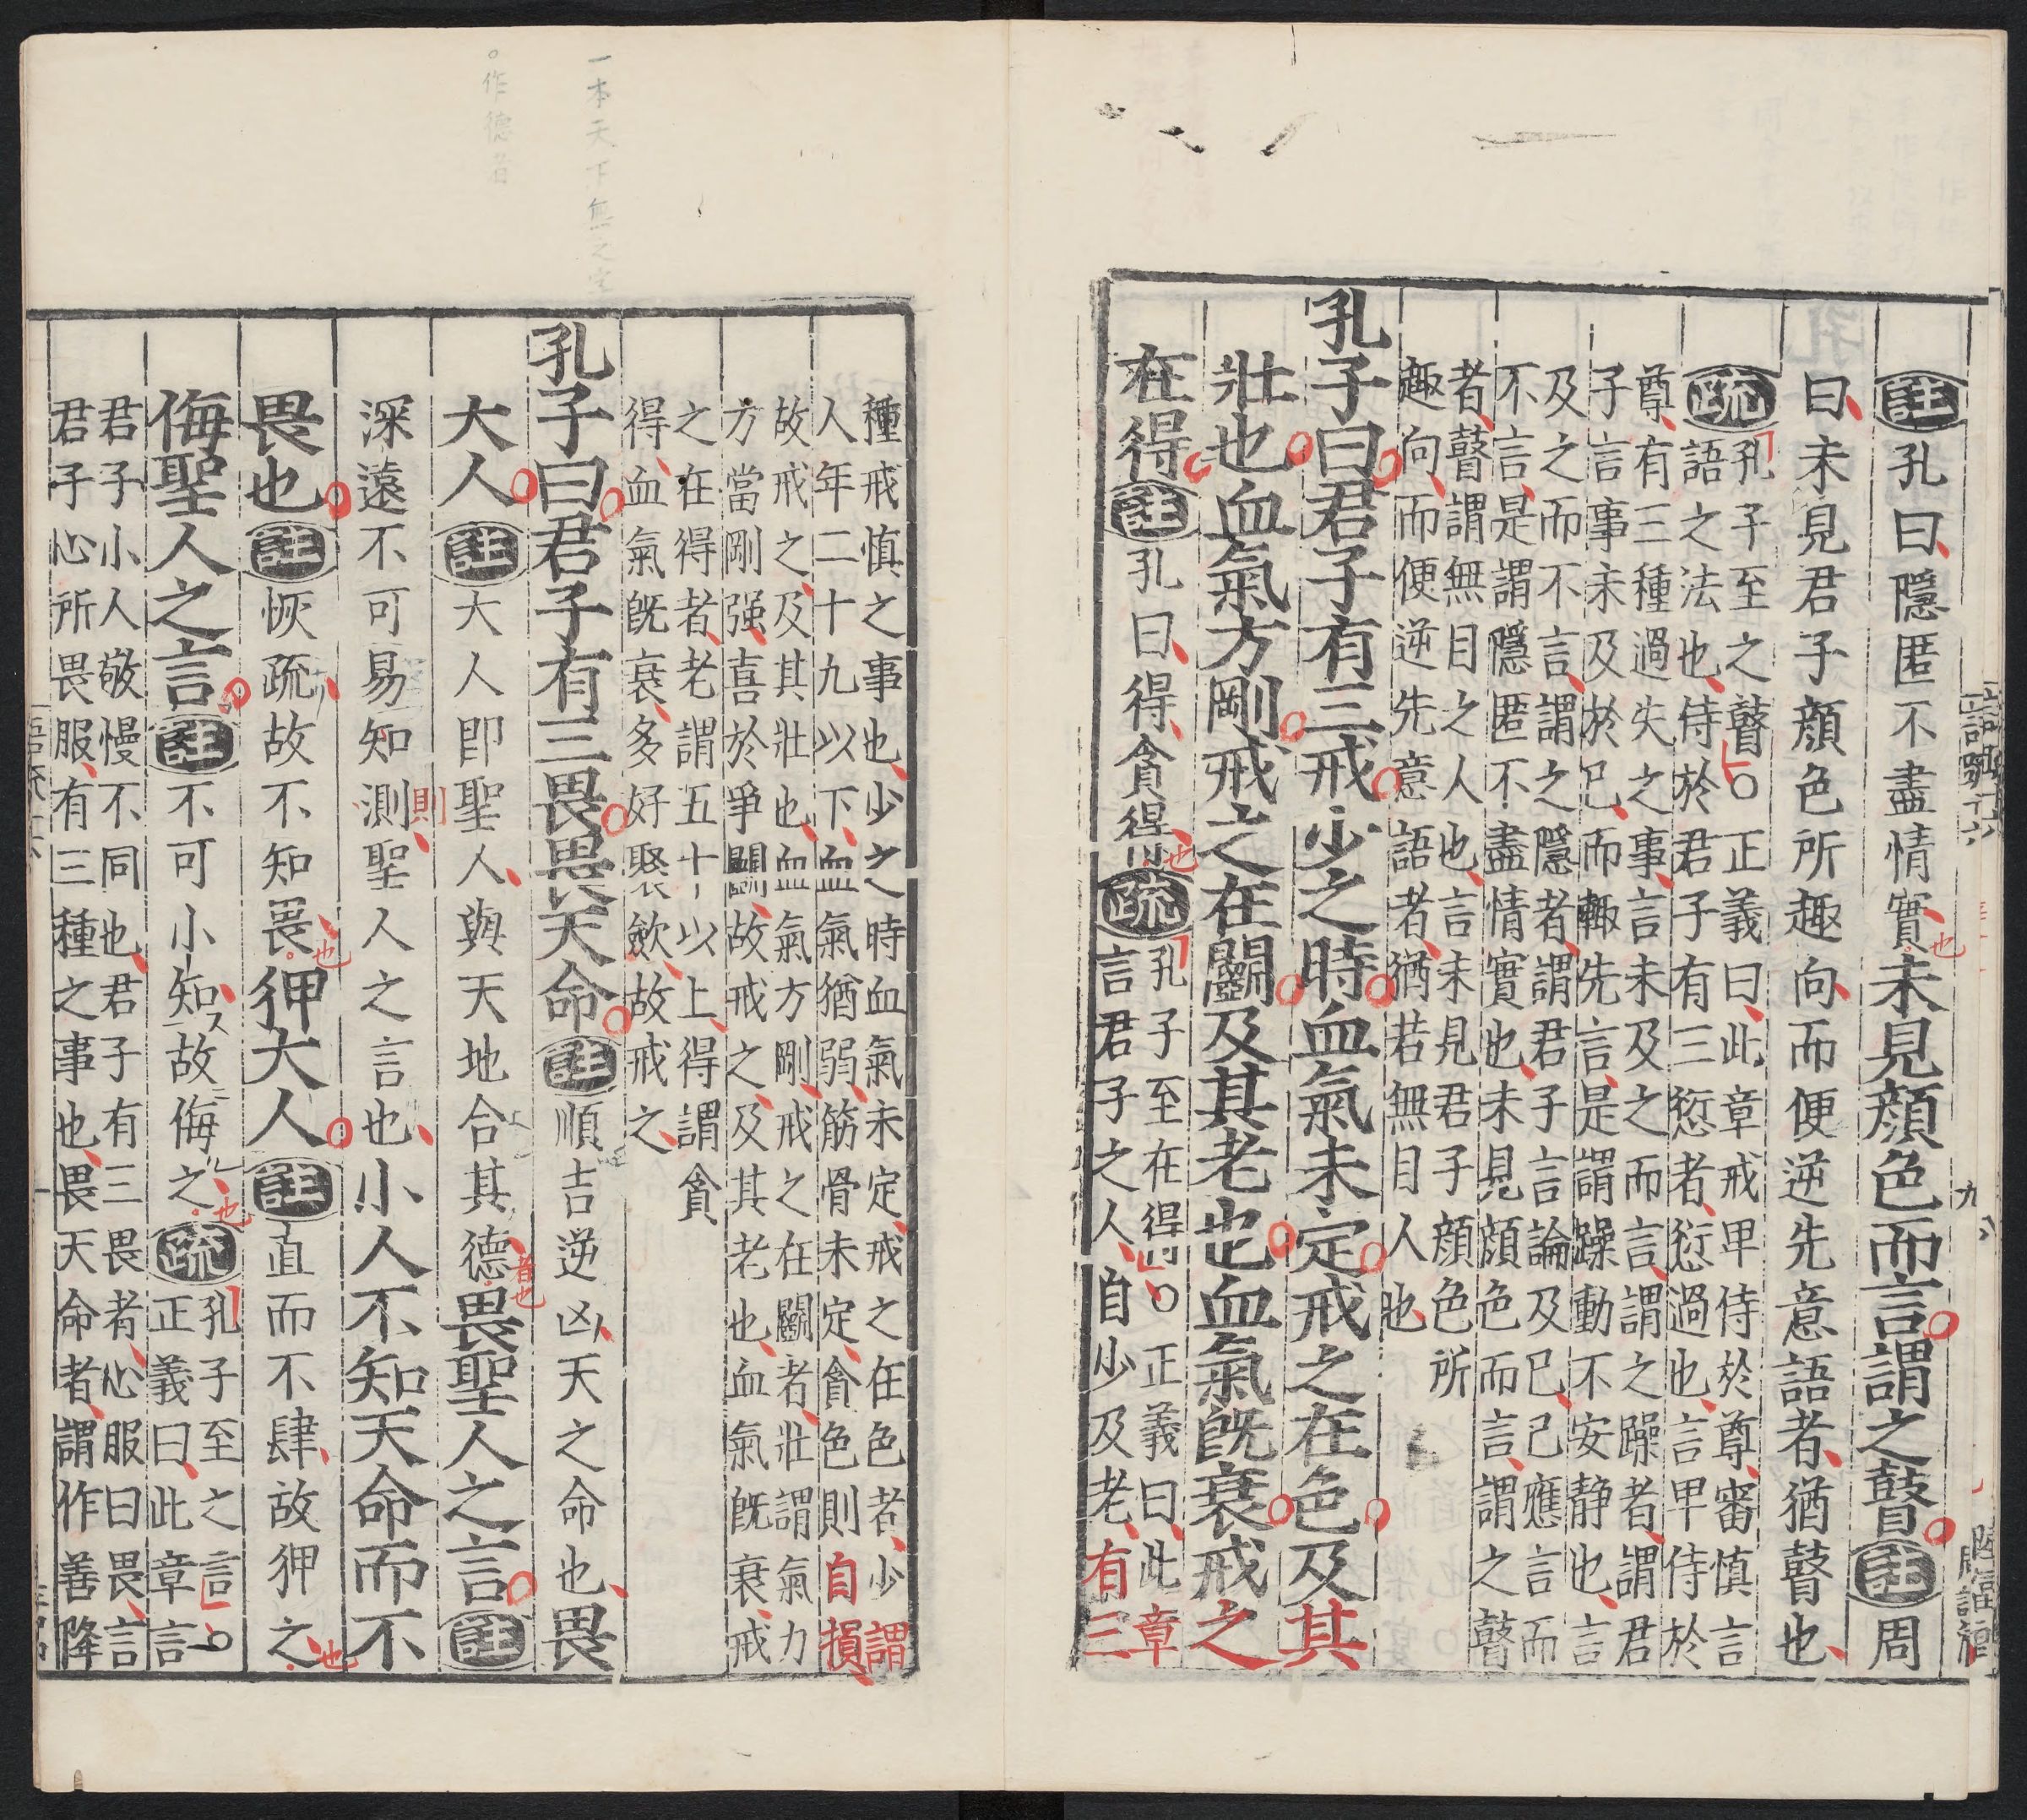 註孔曰隱匿不盡情實也未見顏色而言謂之瞽註周
曰未見君子顏色所趣向而便逆先意語者猶瞽也
疏孔子至之瞽○正義曰此章戒卑侍於尊審慎言
語之法也侍於君子有三愆者愆過也言卑侍於
尊有三種過失之事言未及之而言謂之躁者謂君
子言事未及於己而輒先言是謂躁動不安静也言
及之而不言謂之隱者謂君子言論及己己應言而
不言是謂隱匿不盡情實也未見顔色而言謂之瞽
者瞽謂無目之人也言未見君子顔色所
趣向而便逆先意語者猶若無目人也
孔子曰君子有三戒少之時血氣未定戒之在色及其
壯也血氣方剛戒之在鬬及其老也血氣旣衰戒之
在得註孔曰得貪得也疏孔子至在得○正義曰此章
言君子之人自少及老有三
種戒慎之事也少之時血氣未定戒之在色者少謂
人年二十九以下血氣猶弱筋骨未定貪色則自損
故戒之及其壯也血氣方剛戒之在鬬者壯謂氣力
方當剛强喜於爭鬬故戒之及其老也血氣旣衰戒
之在得者老謂五十以上得謂貪
得血氣旣衰多好聚歛故戒之
孔子曰君子有三畏畏天命註順吉逆凶天之命也畏
大人註大人即聖人與天地合其德者也畏聖人之言註
深遠不可易知測則聖人之言也小人不知天命而不
畏也註恢疏故不知畏也狎大人註直而不肆故狎之也
侮聖人之言註不可小知故侮之也疏孔子至之言○
正義曰此章言
君子小人敬慢不同也君子有三畏者心服曰畏言
君子心所畏服有三種之事也畏天命者謂作善降
一本天下無之字
○作德者